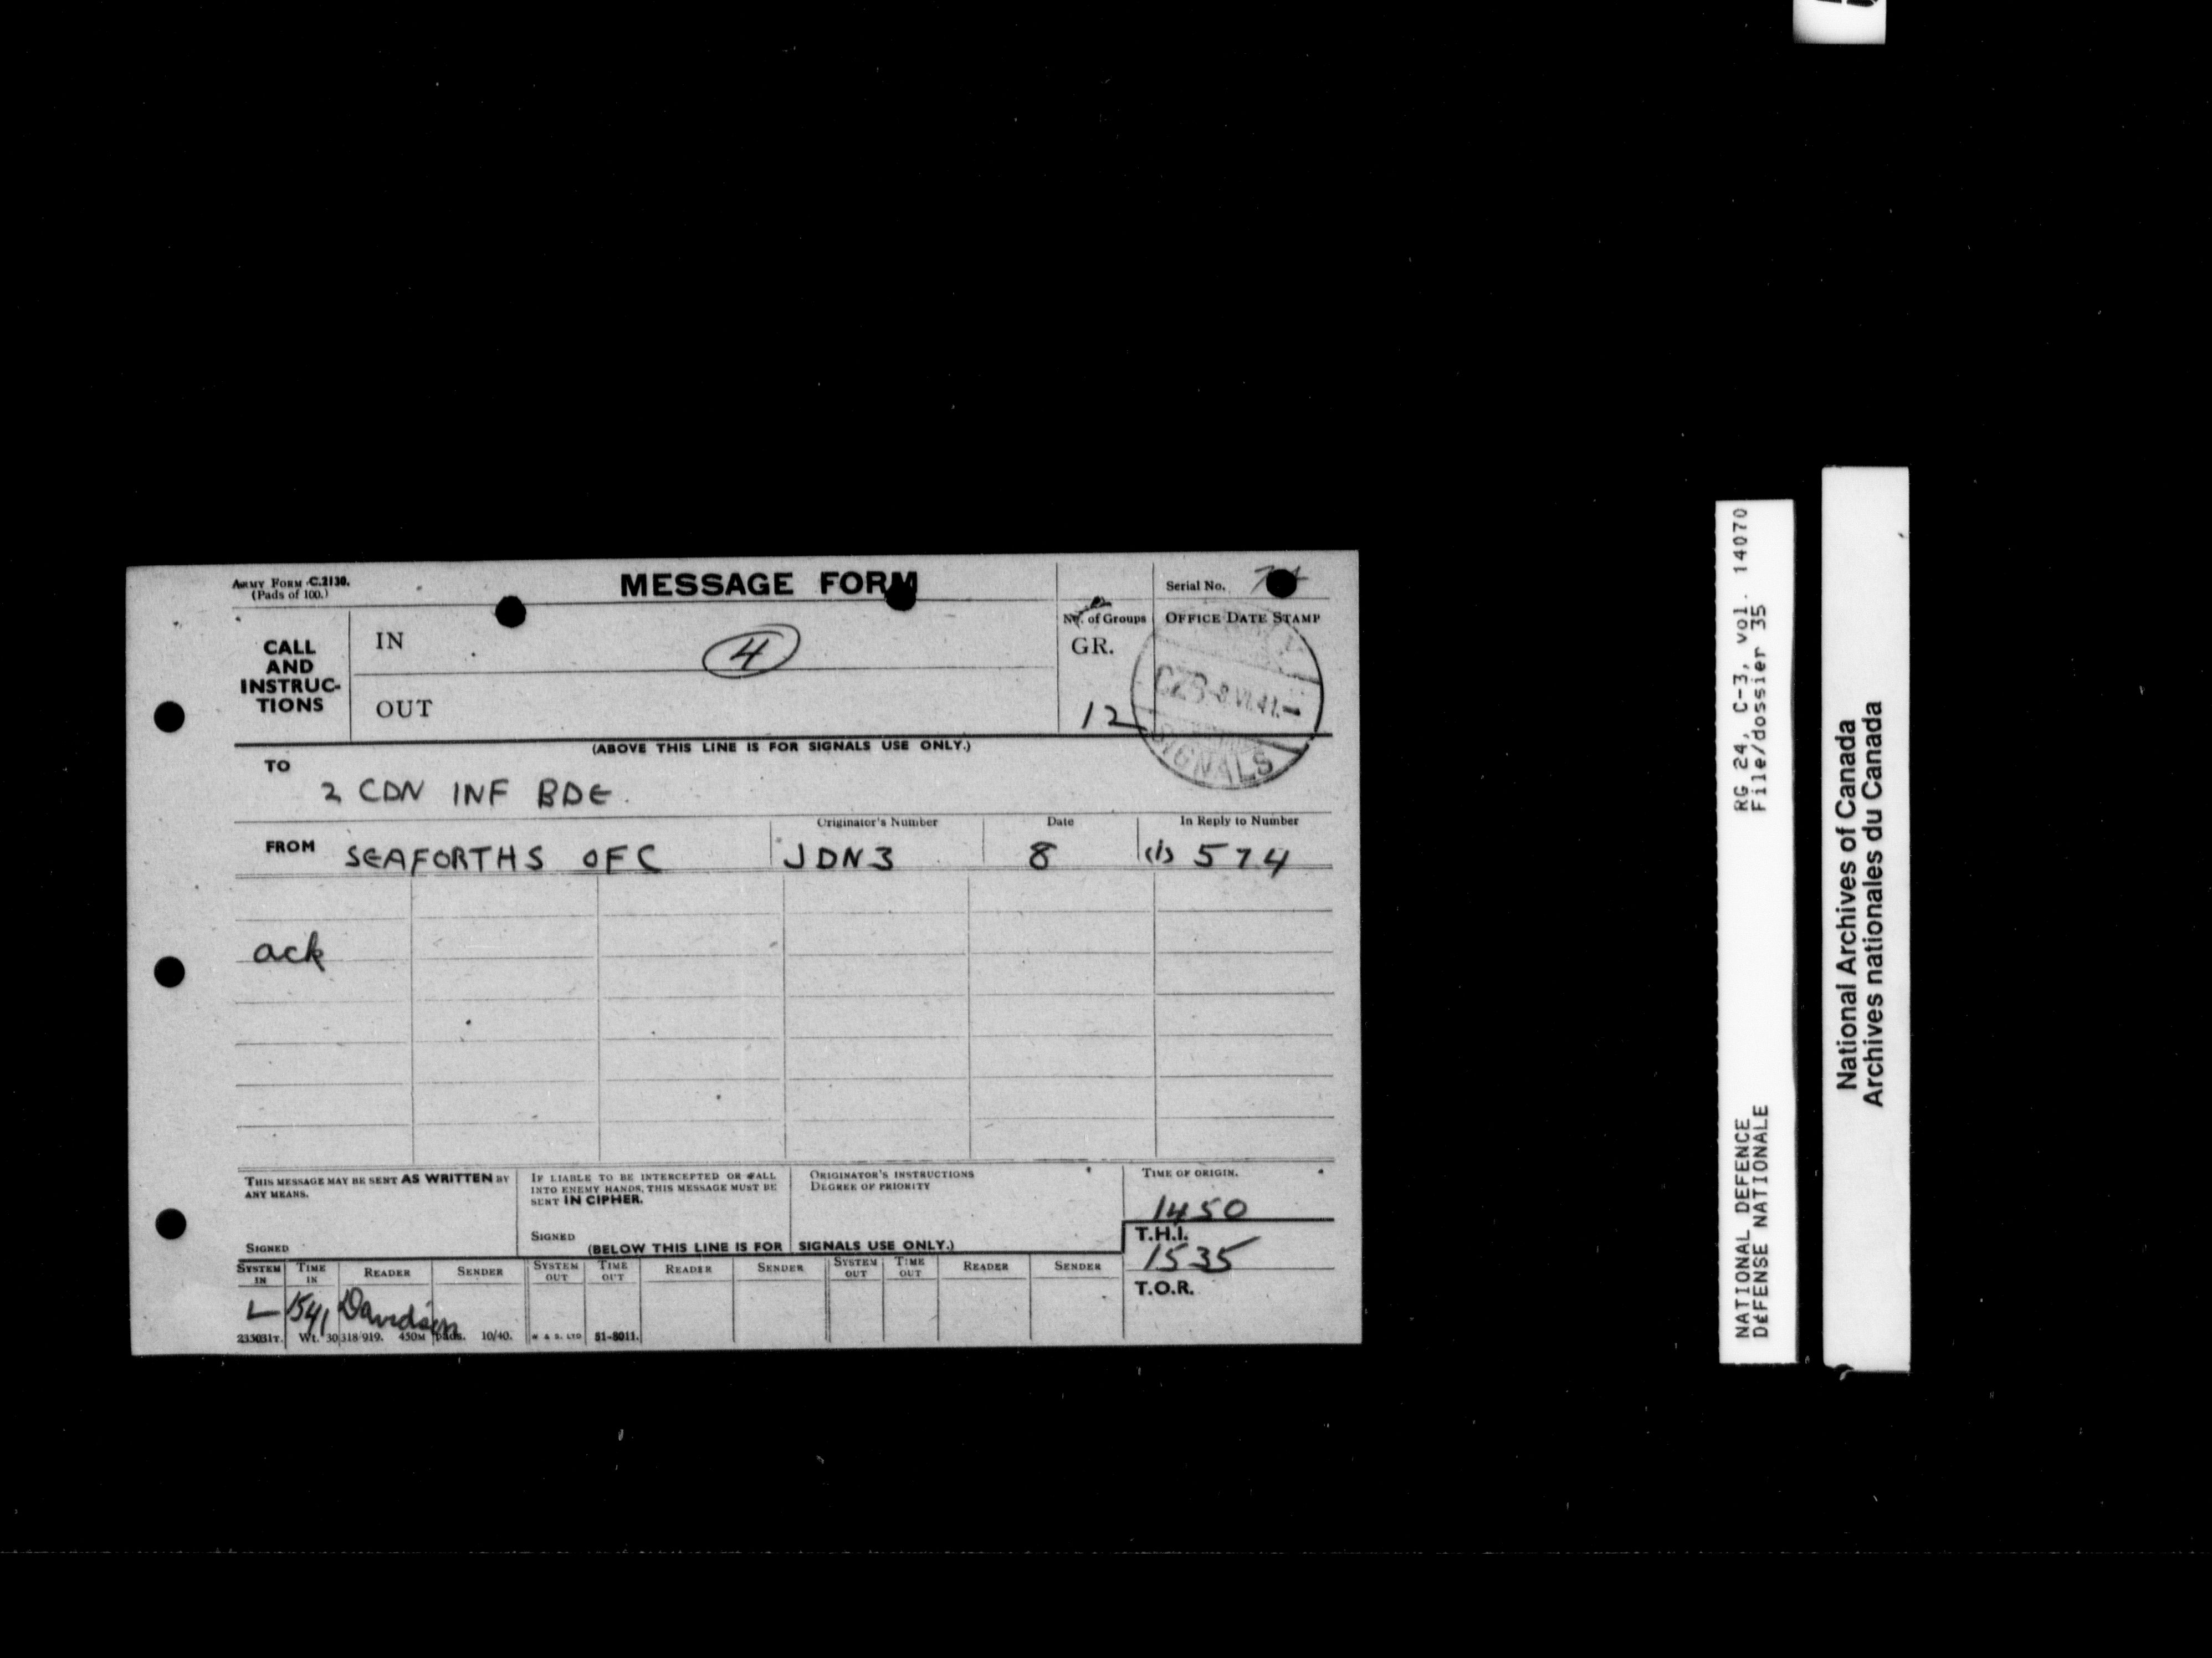 ARMY FORM C.2130.
(Pads of 100.)
MESSAGE FORM
Serial No.
CALL AND INSTRUC-TIONS
IN
4
OUT
No. of Groups
GR.
12
OFFICE DATE STAMP
CZB -8 VI.41.-
SIGNALS
(ABOVE THIS LINE IS FOR SIGNALS USE ONLY.)
TO
2 CDN INF BDE.
FROM SEAFORTHS OFC
Originator's Number
JDN3
Date
8
In Reply to Number
574
ack
THIS MESSAGE MAY BE SENT AS WRITTEN BY
ANY MEANS.
SIGNED
IF LIABLE TO BE INTERCEPTED OR FALL
INTO ENEMY HANDS, THIS MESSAGE MUST BE
SENT IN CIPHER.
SIGNED
ORIGINATOR'S INSTRUCTIONS
DEGREE OF PRIORITY
TIME OF ORIGIN.
1450
T.H.I.
1535
T.O.R.
(BELOW THIS LINE IS FOR SIGNALS USE ONLY.)
SYSTEM IN TIME IN READER SENDER SYSTEM OUT TIME OUT READER SENDER SYSTEM OUT TIME OUT READER SENDER
L 1541 Davidson
233031T. Wt. 30318/919. 450M pads. 10/40. 51-8011.
NATIONAL DEFENCE RG 24, C-3, vol. 14070
DéFENSE NATIONALE File/dossier 35
National Archives of Canada
Archives nationales du Canada